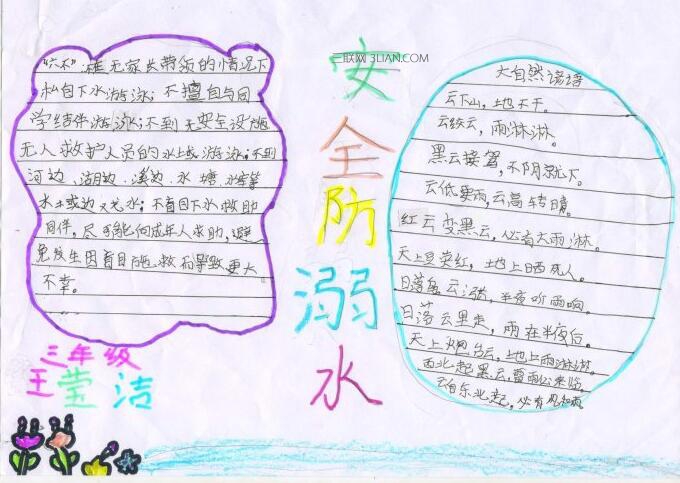 "六不"准无家长带领的情况下
私自下水游泳；不擅自与同
学结伴游泳；不到无安全设施
无人救护人员的水域游泳；不到
河边、湖边、溪边、水塘、水库等
水；不盲目下水救助
同伴，尽可能向成年人求助，避
免发生因盲目施救而导致更大
不幸。
三年级
王莹洁
三联网 3LIAN.COM
安
全
防
溺
水
大自然谚语
云下山，地不干。
云绞云，雨淋淋。
黑云接驾，不阴就下。
云低要雨，云高转晴。
红云变黑云，必有大雨淋。
天上豆荚红，地上晒死人。
日落云涨，半夜听雨响。
日落云里走，雨在半夜后。
天上云，地上雨淋淋。
西北起黑云，雷雨必来临。
云自东北起，必有风和雨